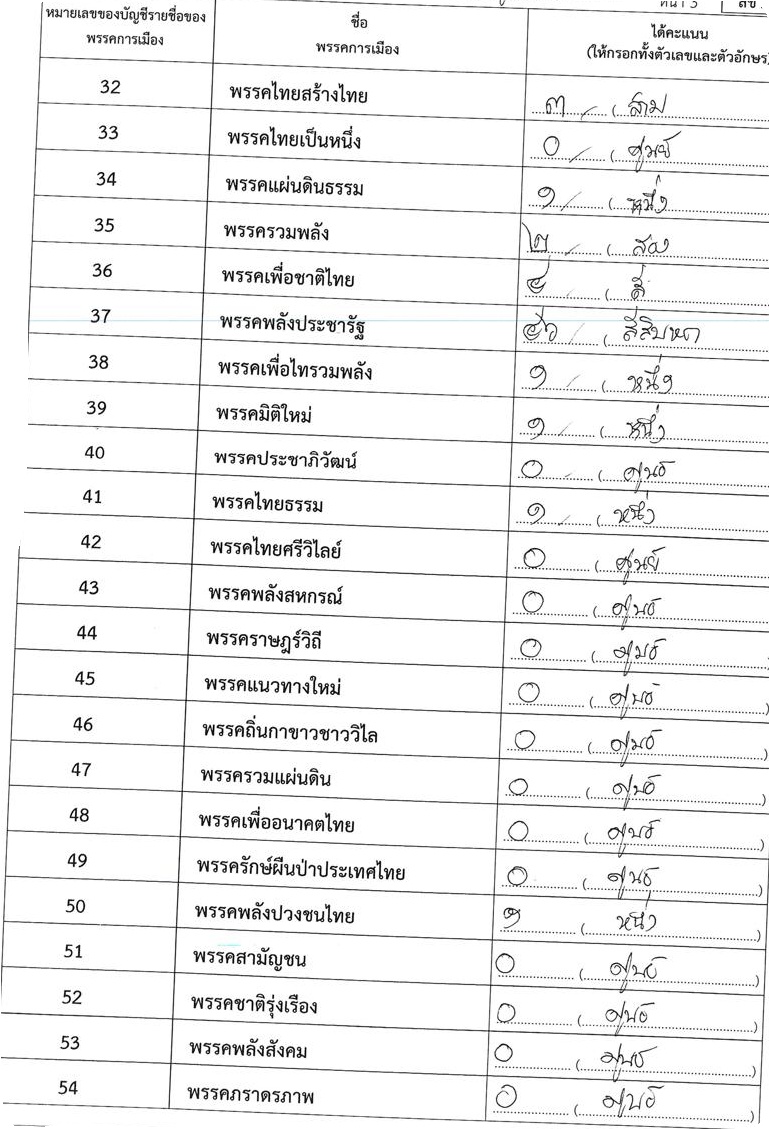 หมายเลขของบัญชีรายชื่อของ
พรรคการเมือง
ชื่อ
พรรคการเมือง
ได้คะแนน
(ให้กรอกทั้งตัวเลขและตัวอักษร)
32 พรรคไทยสร้างไทย ๓ / ( สาม
33 พรรคไทยเป็นหนึ่ง ๐ / ( ศูนย์
34 พรรคแผ่นดินธรรม ๑ / ( หนึ่ง
35 พรรครวมพลัง ๒ / ( สอง
36 พรรคเพื่อชาติไทย ๔ / ( สี่
37 พรรคพลังประชารัฐ ๔๖ / ( สี่สิบหก
38 พรรคเพื่อไทรวมพลัง ๑ / ( หนึ่ง
39 พรรคมิติใหม่ ๑ / ( หนึ่ง
40 พรรคประชาภิวัฒน์ ๐ / ( ศูนย์
41 พรรคไทยธรรม ๑ / ( หนึ่ง
42 พรรคไทยศรีวิไลย์ ๐ ( ศูนย์
43 พรรคพลังสหกรณ์ ๐ ( ศูนย์
44 พรรคราษฎร์วิถี ๐ ( ศูนย์
45 พรรคแนวทางใหม่ ๐ ( ศูนย์ )
46 พรรคถิ่นกาขาวชาววิไล ๐ ( ศูนย์ )
47 พรรครวมแผ่นดิน ๐ ( ศูนย์ )
48 พรรคเพื่ออนาคตไทย ๐ ( ศูนย์ )
49 พรรครักษ์ผืนป่าประเทศไทย ๐ ( ศูนย์ )
50 พรรคพลังปวงชนไทย ๑ ( หนึ่ง )
51 พรรคสามัญชน ๐ ( ศูนย์ )
52 พรรคชาติรุ่งเรือง ๐ ( ศูนย์ )
53 พรรคพลังสังคม ๐ ( ศูนย์ )
54 พรรคภราดรภาพ ๐ ( ศูนย์ )